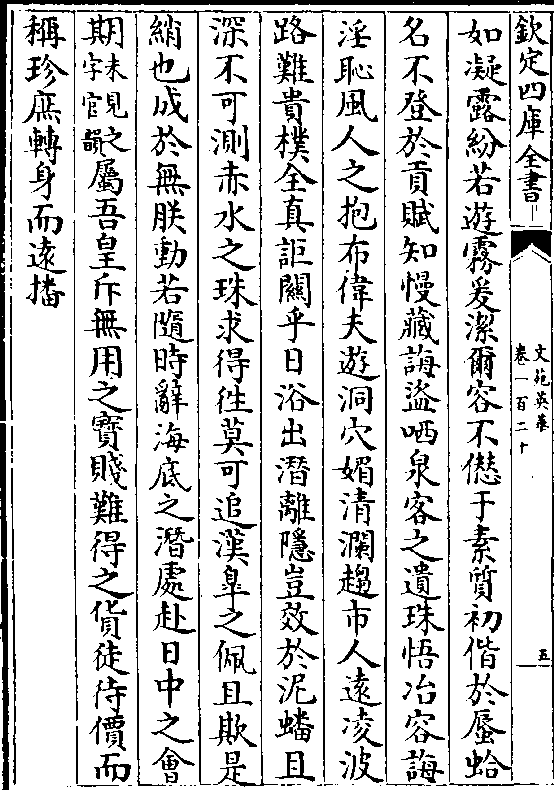 欽定四庫全書
文苑英華
卷一百二十
五
如凝露紛若遊霧爰潔爾容不僽于素質初偕於蜃蛤
名不登於貢賦知慢藏誨盜哂泉客之遺珠悟冶容誨
淫恥風人之抱布偉夫遊洞穴媚清瀾趨市人遠凌波
路難貴樸全真詎關乎日浴出潛離隱豈效於泥蟠且
深不可測赤水之珠求得徃莫可追漢臯之佩且欺是
綃也成於無朕動若隨時辭海底之潛處赴日中之會
期未見之字官韻屬吾皇斥無用之寳賤難得之貨徒待價而
稱珍庶轉身而遠播